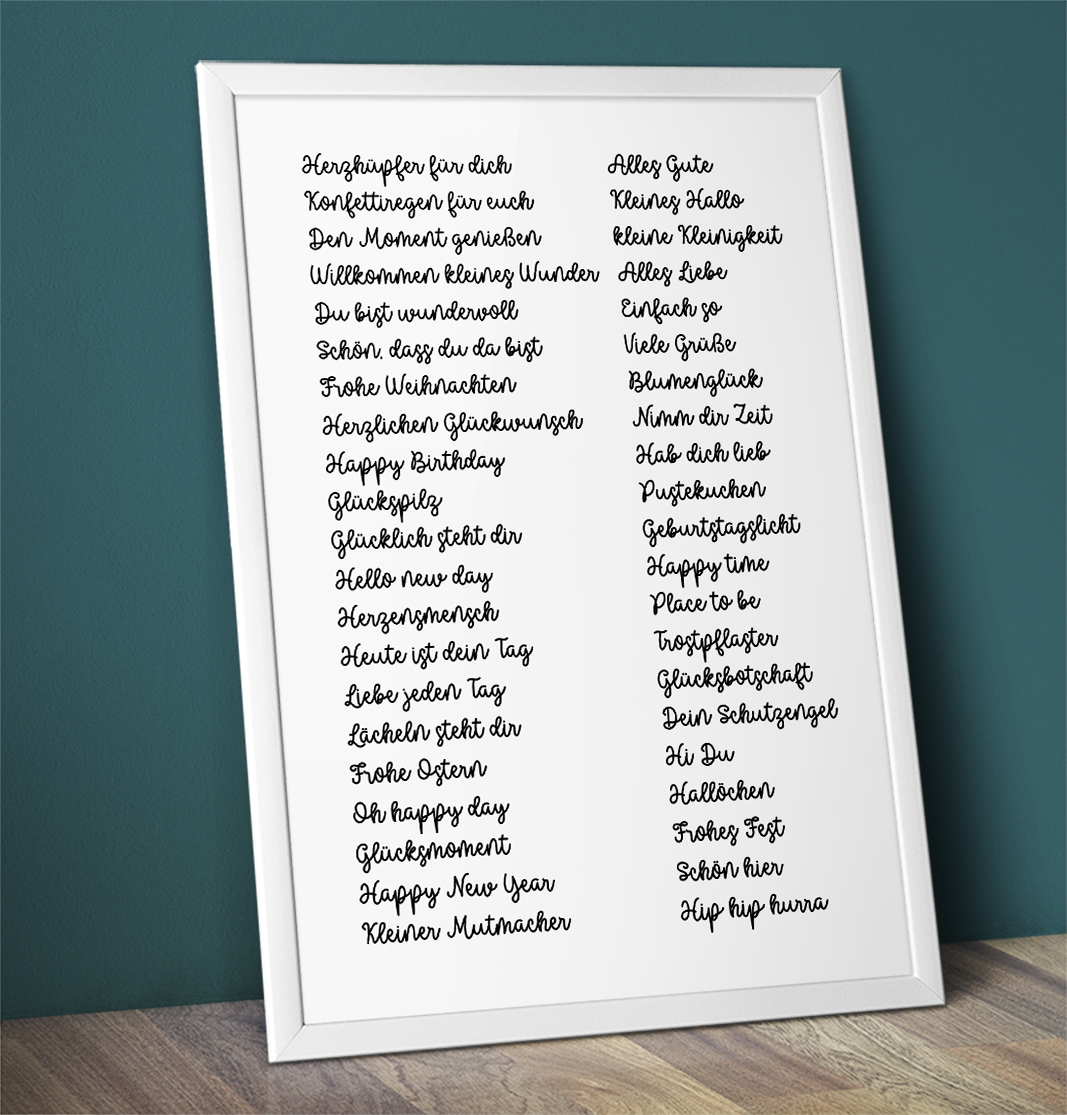 Herzhüpfer für dich
Konfettiregen für euch
Den Moment genießen
Willkommen kleines Wunder
Du bist wundervoll
Schön, dass du da bist
Frohe Weihnachten
Herzlichen Glückwunsch
Happy Birthday
Glückspilz
Glücklich steht dir
Hello new day
Herzensmensch
Heute ist dein Tag
Liebe jeden Tag
Lächeln steht dir
Frohe Ostern
Oh happy day
Glücksmoment
Happy New Year
Kleiner Mutmacher
Alles Gute
Kleines Hallo
kleine Kleinigkeit
Alles Liebe
Einfach so
Viele Grüße
Blumenglück
Nimm dir Zeit
Hab dich lieb
Pustekuchen
Geburtstagslicht
Happy time
Place to be
Trostpflaster
Glücksbotschaft
Dein Schutzengel
Hi Du
Hallöchen
Frohes Fest
Schön hier
Hip hip hurra